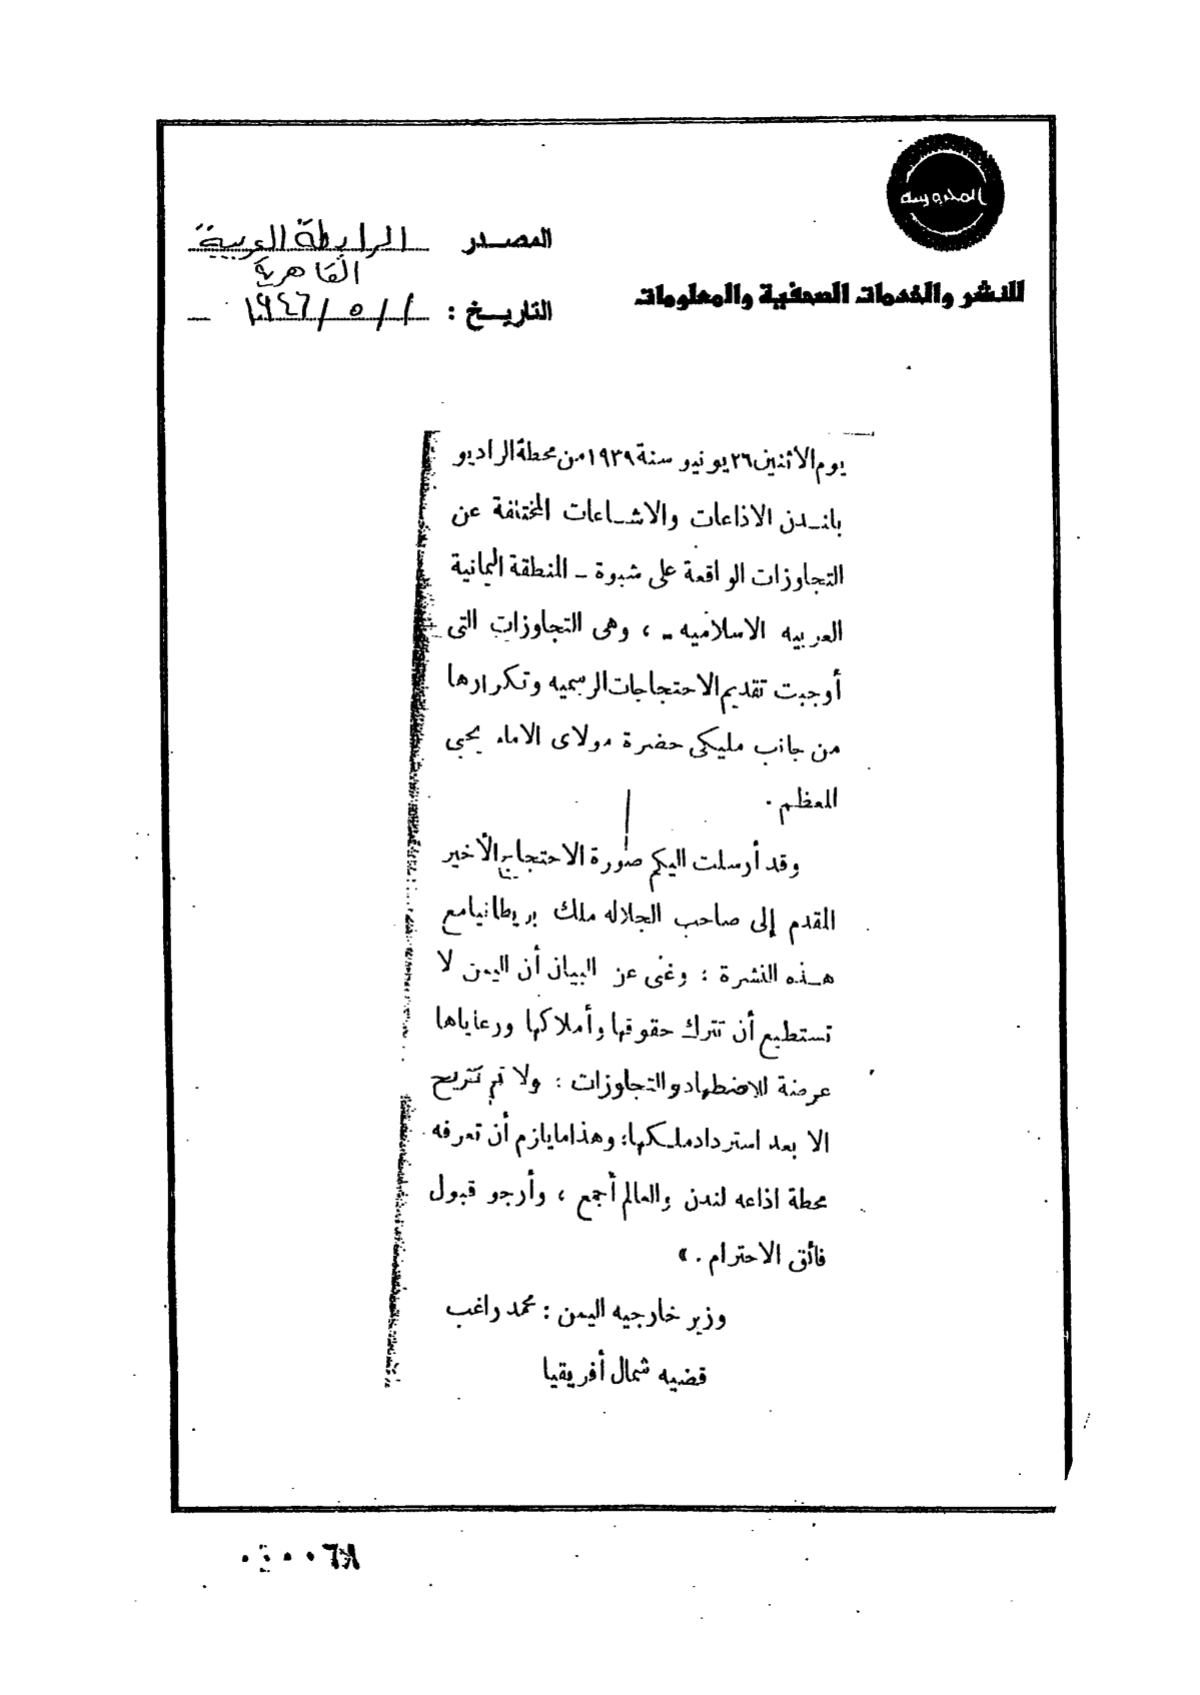 المحروسة
للنشر والخدمات الصحفية والمعلومات
المصدر الرابطة العربية
القاهرية
التاريخ : ١ / ٥ / ١٩٤٦
يوم الاثنين ٢٦ يونيو سنة ١٩٣٩ من محطة الراديو
بلندن الاذاعات والاشاعات المختلفة عن
التجاوزات الواقعة على شبوة – المنطقة اليمانية
العربيه الاسلاميه – ، وهى التجاوزات التى
أوجبت تقديم الاحتجاجات الرسميه وتكرارها
من جانب مليكى حضرة مولاى الامام يحيى
المعظم .
وقد أرسلت اليكم صورة الاحتجاج الأخير
المقدم إلى صاحب الجلاله ملك بريطانيا مع
هذه النشرة ؛ وغنى عن البيان أن اليمن لا
تستطيع أن تترك حقوقها وأملاكها ورعاياها
عرضة للاضطهاد والتجاوزات ؛ ولا تستريح
الا بعد استرداد ملكها؛ وهذا ما يلزم أن تعرفه
محطة اذاعه لندن والعالم أجمع ، وأرجو قبول
فائق الاحترام . »
وزير خارجيه اليمن : محمد راغب
قضيه شمال أفريقيا
٠٤٠٠٦٨